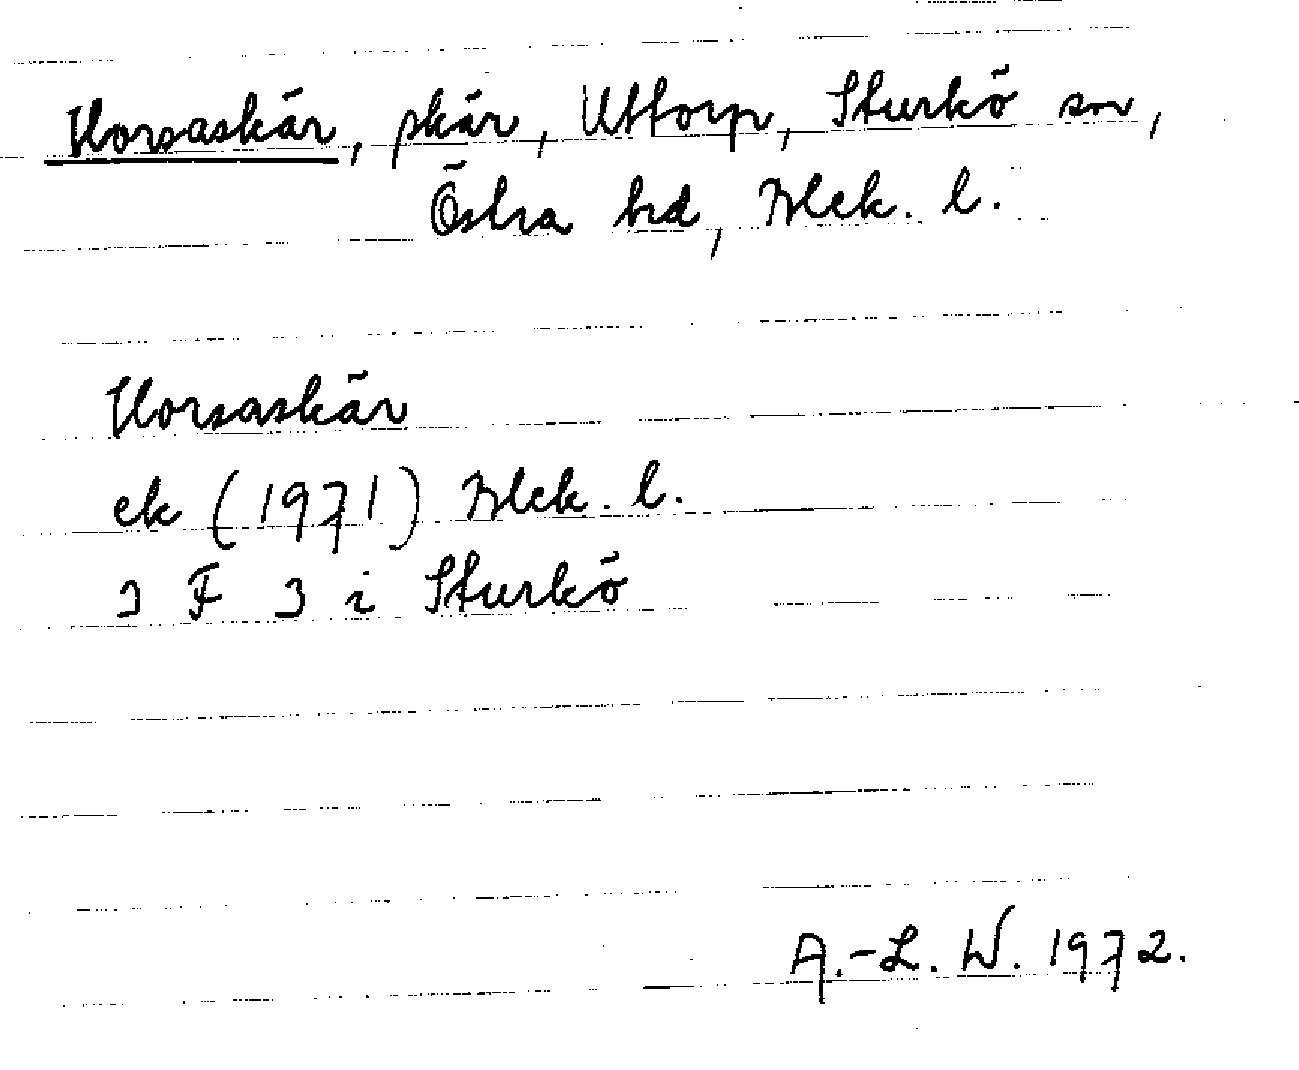 Horsaskär, skär, Uttorp, Sturkö sn,
Östra hd, Blek. l.
Horsaskär
ek (1971) Blek. l.
3 F 3 i Sturkö
A.-L. W. 1972.